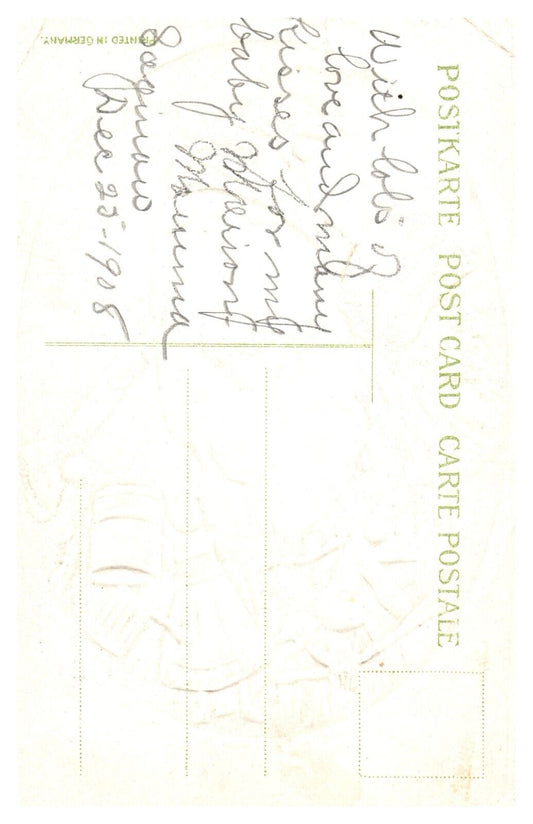 POSTKARTE POST CARD CARTE POSTALE
With lots of
love and many
kisses for my
baby
Mamma
Saginaw
Dec 25-1908
PRINTED IN GERMANY.